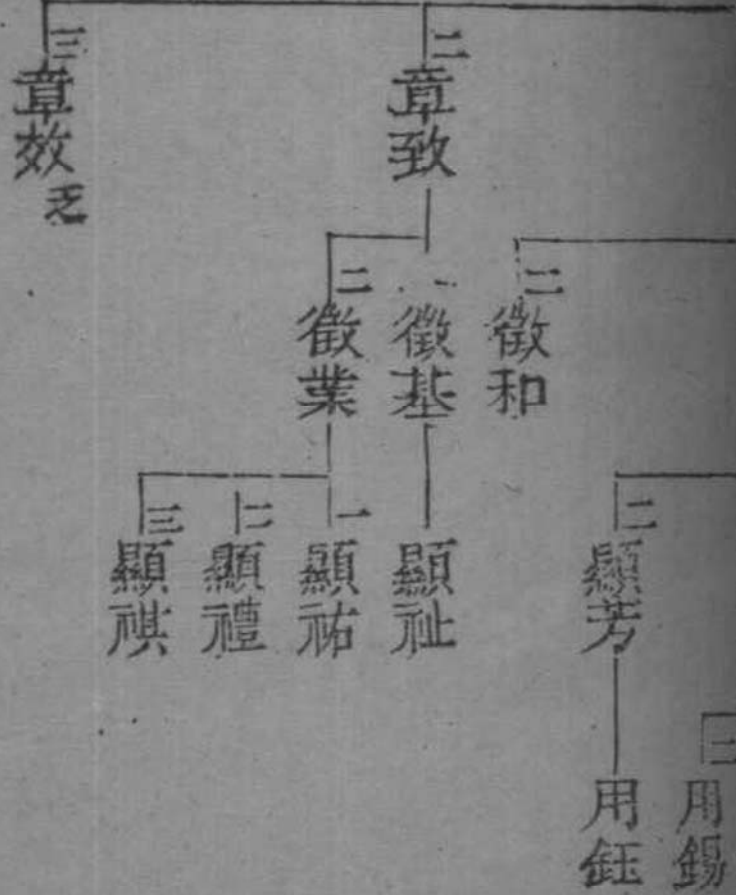 二 章致
三 章效 乏
二 徵和
一 徵基
二 徵業
二 顯芳
顯祉
一 顯祐
二 顯禮
三 顯祺
二 用錫
用鈺